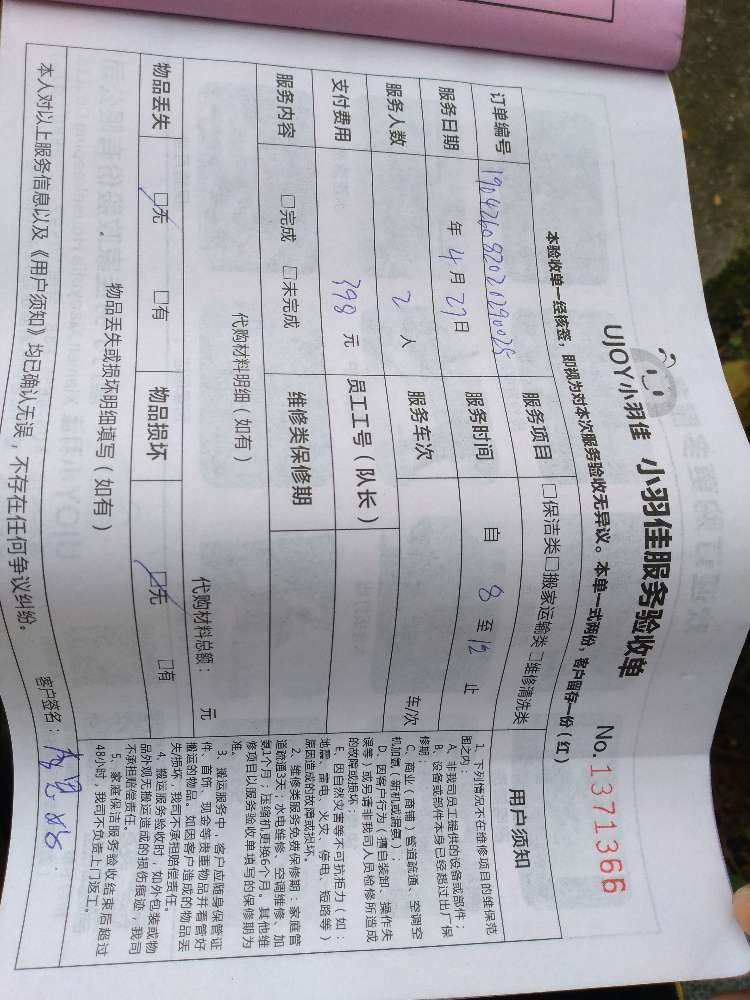 UJOY小羽佳 小羽佳服务验收单 No.1371366
本验收单一经核签，即视为对本次服务验收无异议。本单一式两份，客户留存一份（红）
订单编号 190426082020290025 服务项目 □保洁类□搬家运输类□维修清洗类
服务日期 年 4 月 27 日 服务时间 自 8 至 12 止
服务人数 2 人 服务车次 车/次
支付费用 398 元 员工工号（队长）
服务内容 □完成 □未完成 维修类保修期
代购材料明细（如有） 代购材料总额： 元
物品丢失 □无 □有 物品损坏 □无 □有
物品丢失或损坏明细填写（如有）
本人对以上服务信息以及《用户须知》均已确认无误，不存在任何争议纠纷。 客户签名：
用户须知
1. 下列情况不在维修项目的维保范
围之内：
A、非我司员工提供的设备或部件；
B、设备或部件本身已经超过出厂保
修期；
C、商业（商铺）管道疏通、空调空
机加氨（新机或漏氨）；
D、因客户行为（擅自装卸、操作失
误等）或另请非我司人员检修所造成
的故障或损坏；
E、因自然灾害等不可抗拒力（如：
地震、雷电、火灾、停电、短路等）
原因造成的故障或损坏。
2、维修类服务免费保修期：家庭管
道疏通3天；水电维修、空调维修、加
氨1个月；压缩机更换6个月。其他维
修项目以服务验收单填写的保修期为
准。
3、搬运服务中，客户应随身保管证
件、首饰、现金等贵重物品并看管好
搬运的物品。如因客户造成的物品丢
失/损坏，我司不承担赔偿责任。
4、搬运服务验收时，如外包装或物
品外观无搬运造成的损伤痕迹，我司
不承担赔偿责任。
5、家庭保洁服务验收结束后超过
48小时，我司不负责上门返工。